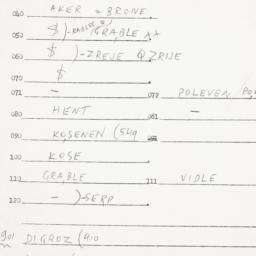 040 AKER = BRONE
050 $ )-RABLSE IGRABLE XX
060 $ )-ZREJE QZRIJE
070 $
071 — 072 POLEVEN
080 HENT 081 —
090 KOSENEN (549
100 KOSE
110 GRABLE 111 VIDLE
120 — )-SERP
901 DIGROZ (410